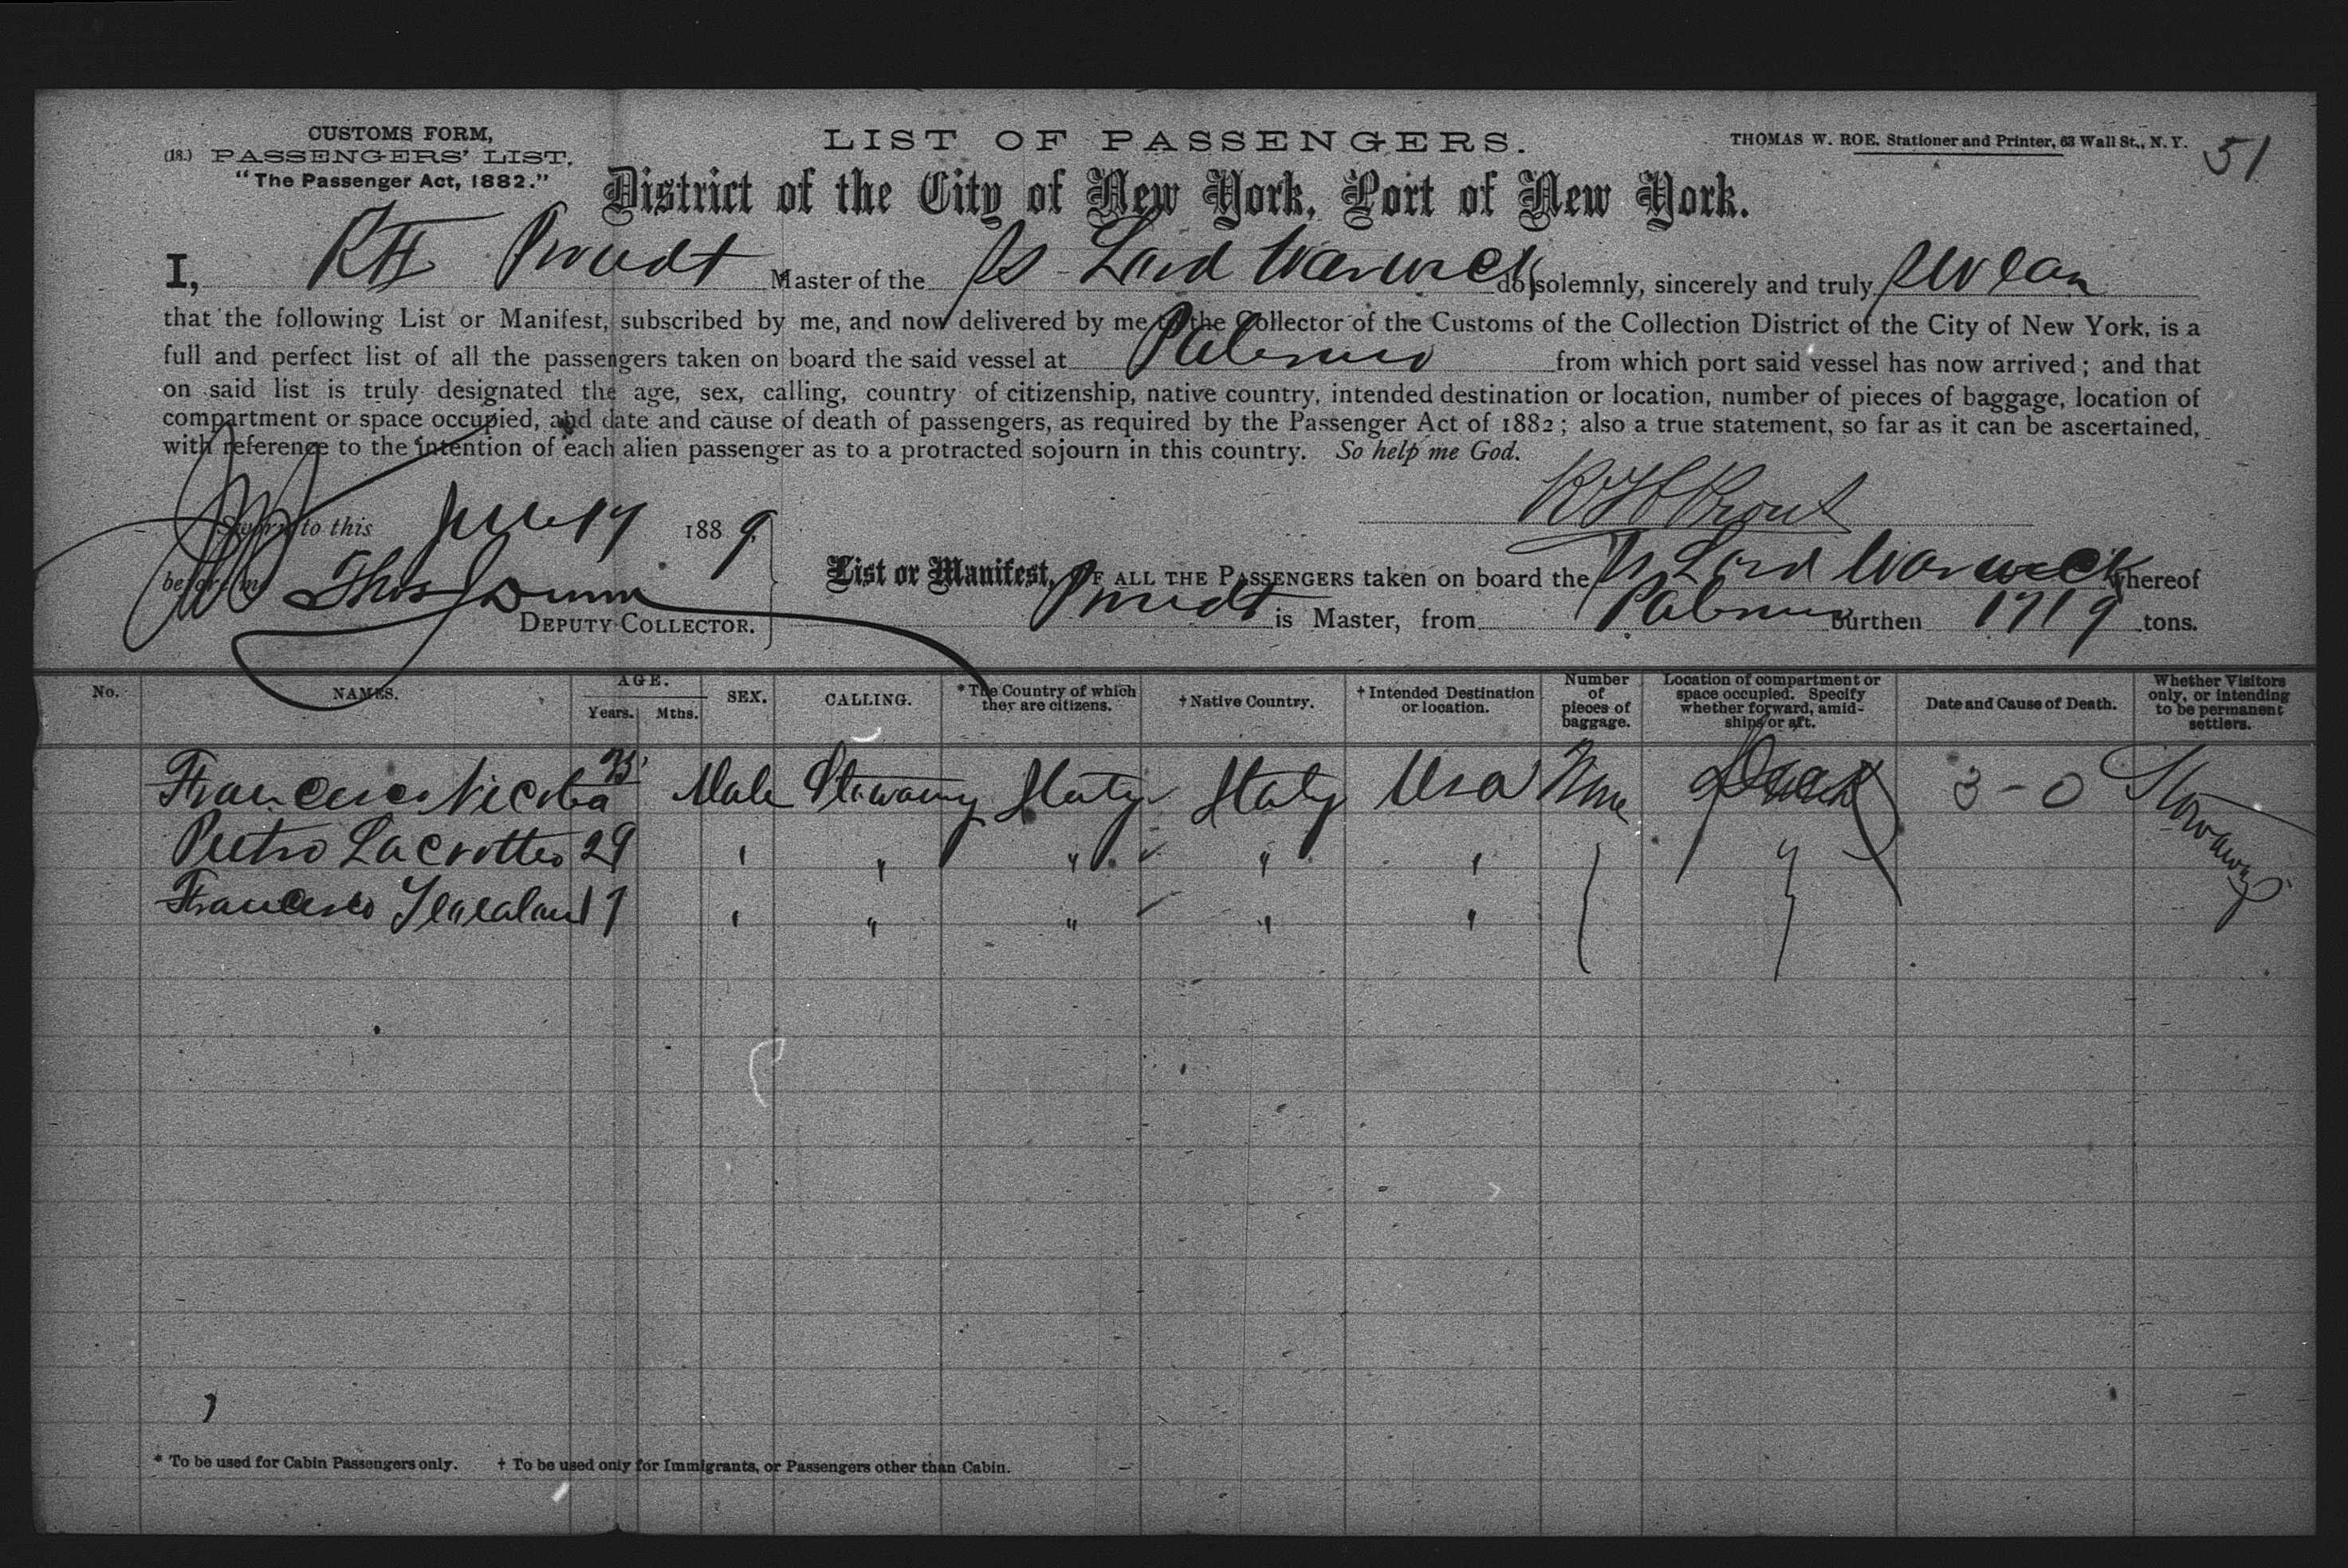 CUSTOMS FORM,
(18.) PASSENGERS' LIST.
"The Passenger Act, 1882."
LIST OF PASSENGERS.
THOMAS W. ROE, Stationer and Printer, 63 Wall St., N. Y.
51
District of the City of New York, Port of New York.
I, R H Master of the SS Lord Warwick do solemnly, sincerely and truly swear
that the following List or Manifest, subscribed by me, and now delivered by me to the Collector of the Customs of the Collection District of the City of New York, is a
full and perfect list of all the passengers taken on board the said vessel at Palermo from which port said vessel has now arrived; and that
on said list is truly designated the age, sex, calling, country of citizenship, native country, intended destination or location, number of pieces of baggage, location of
compartment or space occupied, and date and cause of death of passengers, as required by the Passenger Act of 1882; also a true statement, so far as it can be ascertained,
with reference to the intention of each alien passenger as to a protracted sojourn in this country. So help me God.
R H Prout
Sworn to this 1889
before me Thos Dunn
DEPUTY COLLECTOR.
List or Manifest, OF ALL THE PASSENGERS taken on board the SS Lord Warwick whereof
is Master, from Palermo burthen 1719 tons.
No. NAMES. AGE. Years. Mths. SEX. CALLING. * The Country of which they are citizens. † Native Country. † Intended Destination or location. Number of pieces of baggage. Location of compartment or space occupied. Specify whether forward, amidships or aft. Date and Cause of Death. Whether Visitors only, or intending to be permanent settlers.
Francesco Nicolia Male Stowaway Italy Italy Usa None 3-0 Stowaway
Pietro 29 " " " " "
Francesco 17 " " " " "
* To be used for Cabin Passengers only. † To be used only for Immigrants, or Passengers other than Cabin.